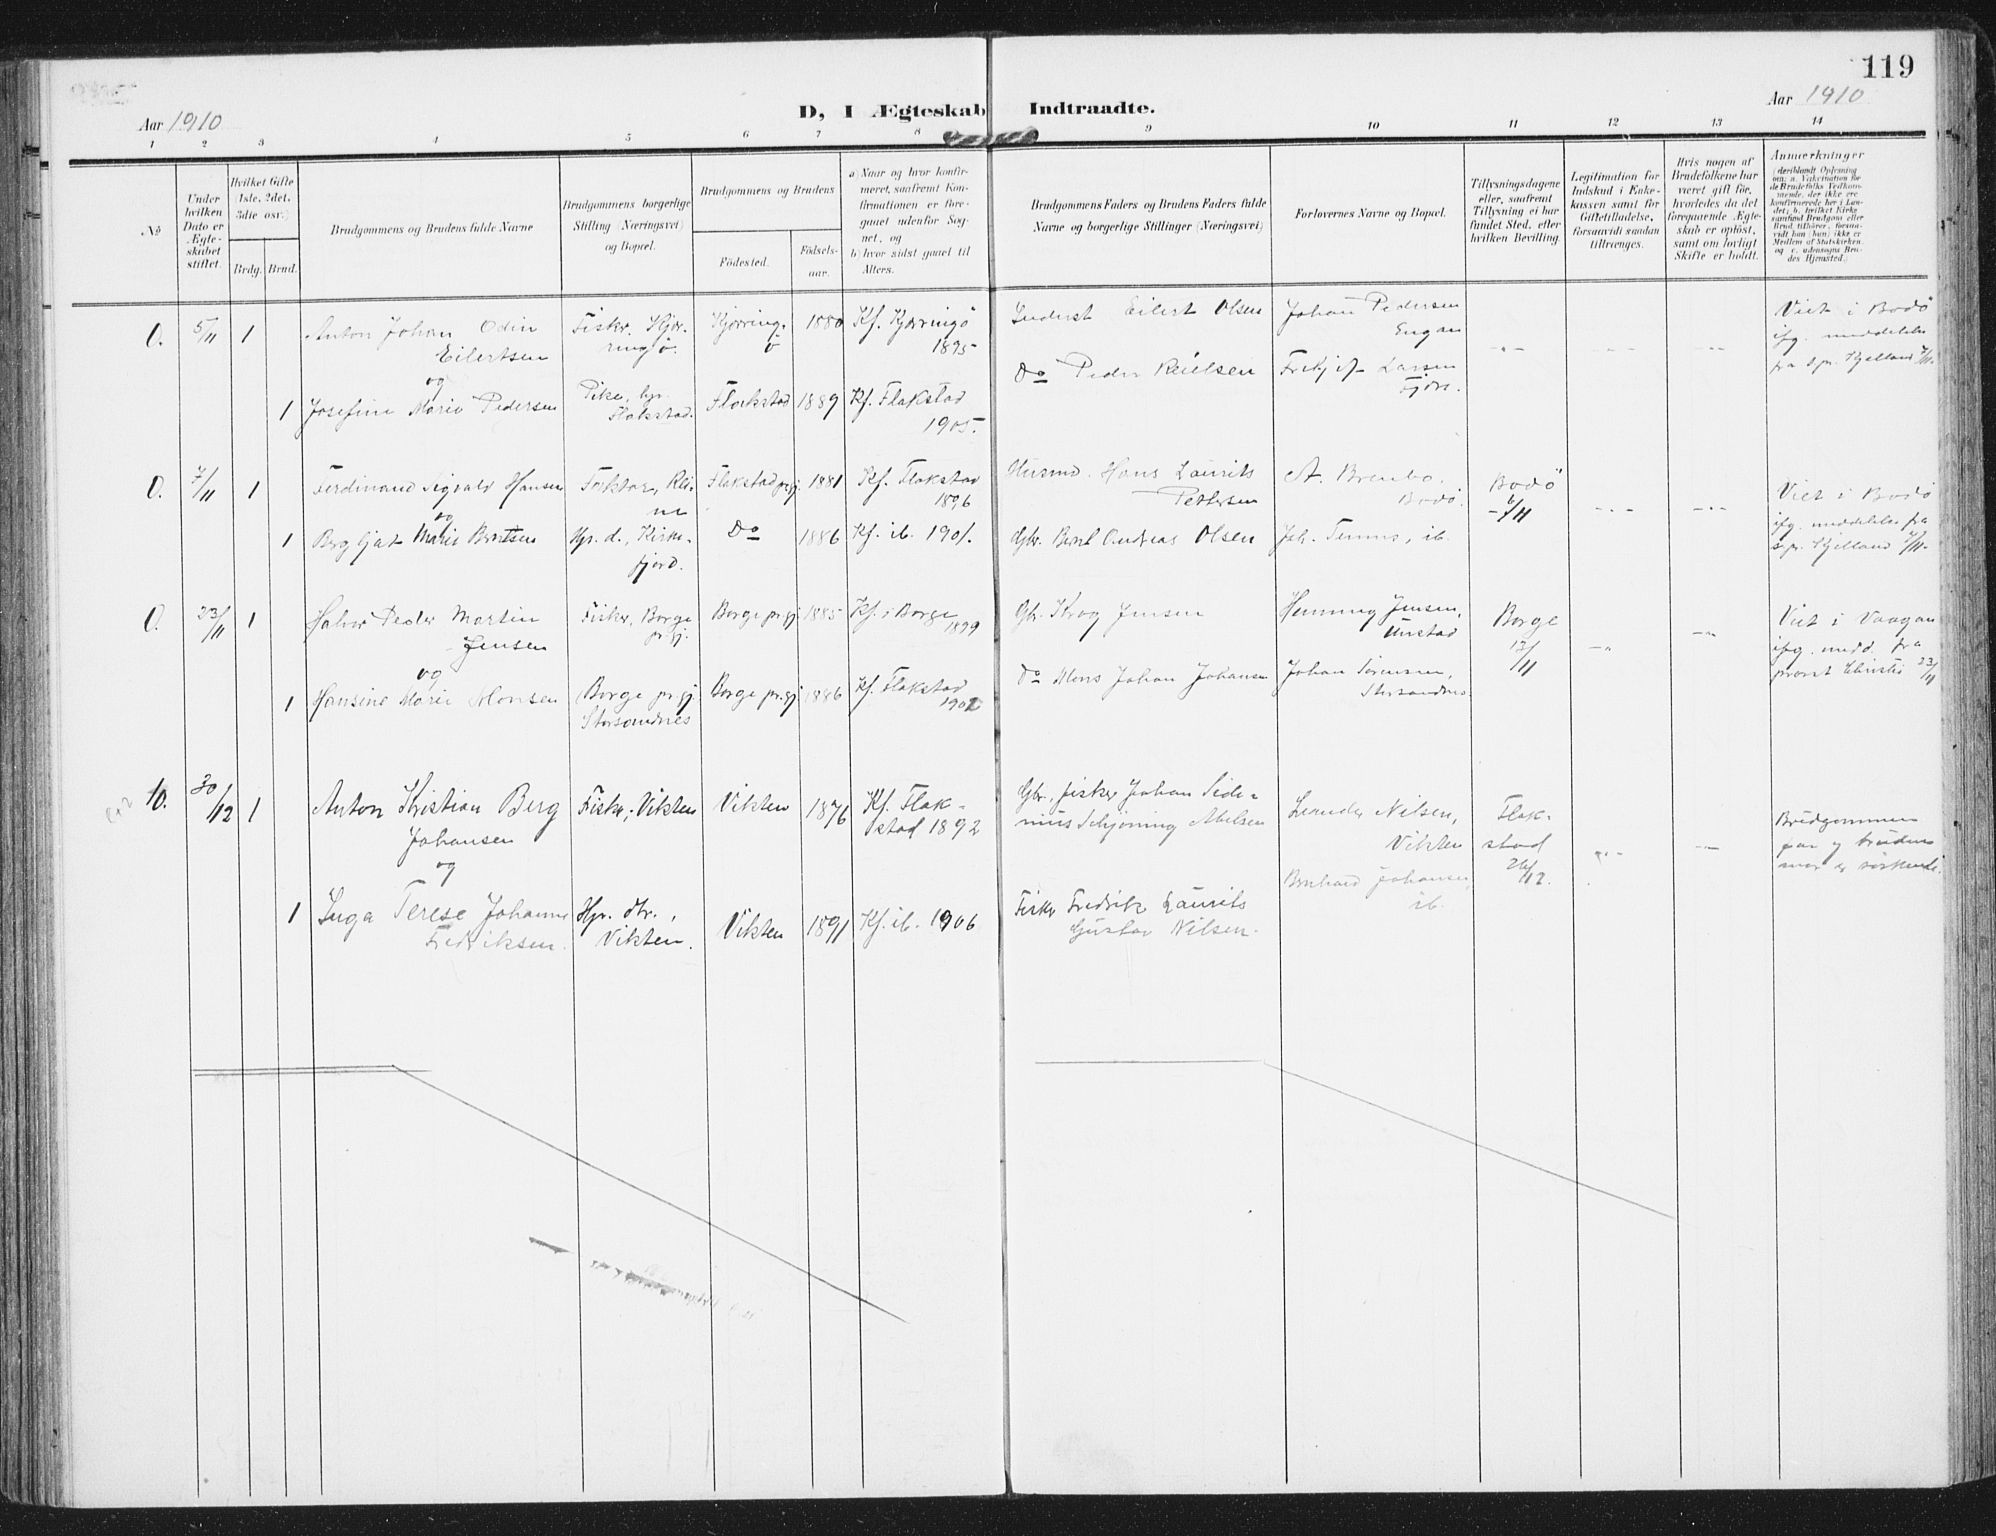 119
Aar 1910
D, I Ægteskab Indtraadte.
Aar 1910
1 2 3 4 5 6 7 8 9 10 11 12 13 14
№
Under
hvilken
Dato er
Ægte-
skabet
stiftet.
Hvilket Gifte
(1ste, 2det,
3die osv.)
Brdg. Brud.
Brudgommens og Brudens fulde Navne
Brudgommens borgerlige
Stilling (Næringsvei)
og Bopæl.
Brudgommens og Brudens
Fødested.
Fødsels-
aar.
a) Naar og hvor konfir-
meret, saafremt Kon-
firmationen er fore-
gaaet udenfor Sog-
net, og
b) hvor sidst gaaet til
Alters.
Brudgommens Faders og Brudens Faders fulde
Navne og borgerlige Stillinger (Næringsvei)
Forlovernes Navne og Bopæl.
Tillysningsdagene
eller, saafremt
Tillysning ei har
fundet Sted, efter
hvilken Bevilling.
Legitimation for
Indskud i Enke-
kassen samt for
Giftetilladelse,
forsaavidt saadan
tiltrænges.
Hvis nogen af
Brudefolkene har
været gift før,
hvorledes da det
foregaaende Ægte-
skab er opløst,
samt om lovligt
Skifte er holdt.
Anmerkninger
(deriblandt Oplysning
om: a. Vakcination for
de Brudefolks Vedkom-
mende, der ikke ere
konfirmerede her i Lan-
det; b. hvilket Kirke-
samfund Brudgom eller
Brud tilhører, forsaa-
vidt han (hun) ikke er
Medlem af Statskirken,
og c. udensogns Bru-
des Hjemsted.)
0. 5/11 1 Anton Johan Odin
Eilertsen
og
Fisker, Kjær-
ringø.
Kjærring-
ø
1880 Kf. Kjærringø
1895
Eilert Olsen
Johan Pedersen
Engan
Viet i Bodø
ifg. meddelelse
fra s.pr. Kjelland 7/11.
1 Josefine Marie Pedersen
Pike,
Flakstad.
Flakstad 1889 Kf. Flakstad
1905.
Do Peder
Larsen
0. 7/11 1 Ferdinand Sigvald Hansen
og
Flakstad prgj. 1881 Kf. Flakstad
1896
Husmd. Hans Laurits
Pettersen
A. Brembo.
Bodø.
Bodø
6/11
Viet i Bodø
ifg. meddelelse fra
s.pr. Kjelland 7/11.
1 Bergljot Marie Berntsen
Hpr. d., Kirke-
fjord.
Do 1886 Kf. ib. 1901.
Gbr. Bernt Andreas Olsen
Joh. ib.
0. 23/11 1 Halvor Peder Martin
Jensen
og
Fisker, Borge
prgj.
Borge prgj. 1885 Kf. i Borge
1899
Gbr. Krog Jensen
Henning Jensen,
Unstad
Borge
13/11
Viet i Vaagan
ifg. medd. fra
provst Christie 23/11
1 Hansine Marie Monsen
Borge prgj.
Storsandnes
Borge prgj. 1886 Kf. Flakstad
1902
Do Mons Johan Johansen
Johan Sørensen,
Storsandnes
10. 30/12 1 Anton Kristian Berg
Johansen
og
Fisker, Vikten Vikten 1876 Kf. Flak-
stad 1892
Gbr., fisker Johan Side-
nius Schjøning Abelsen
Leander Nilsen,
Vikten
Flak-
stad
26/12.
Brudgommens
far og brudens
mor er søskende.
1 Inga Terese Johanne
Fredriksen.
Hpr. dtr.,
Vikten.
Vikten 1891 Kf. ib. 1906
Fisker Fredrik Laurits
Gustav Nilsen.
Bernhard Johansen,
ib.